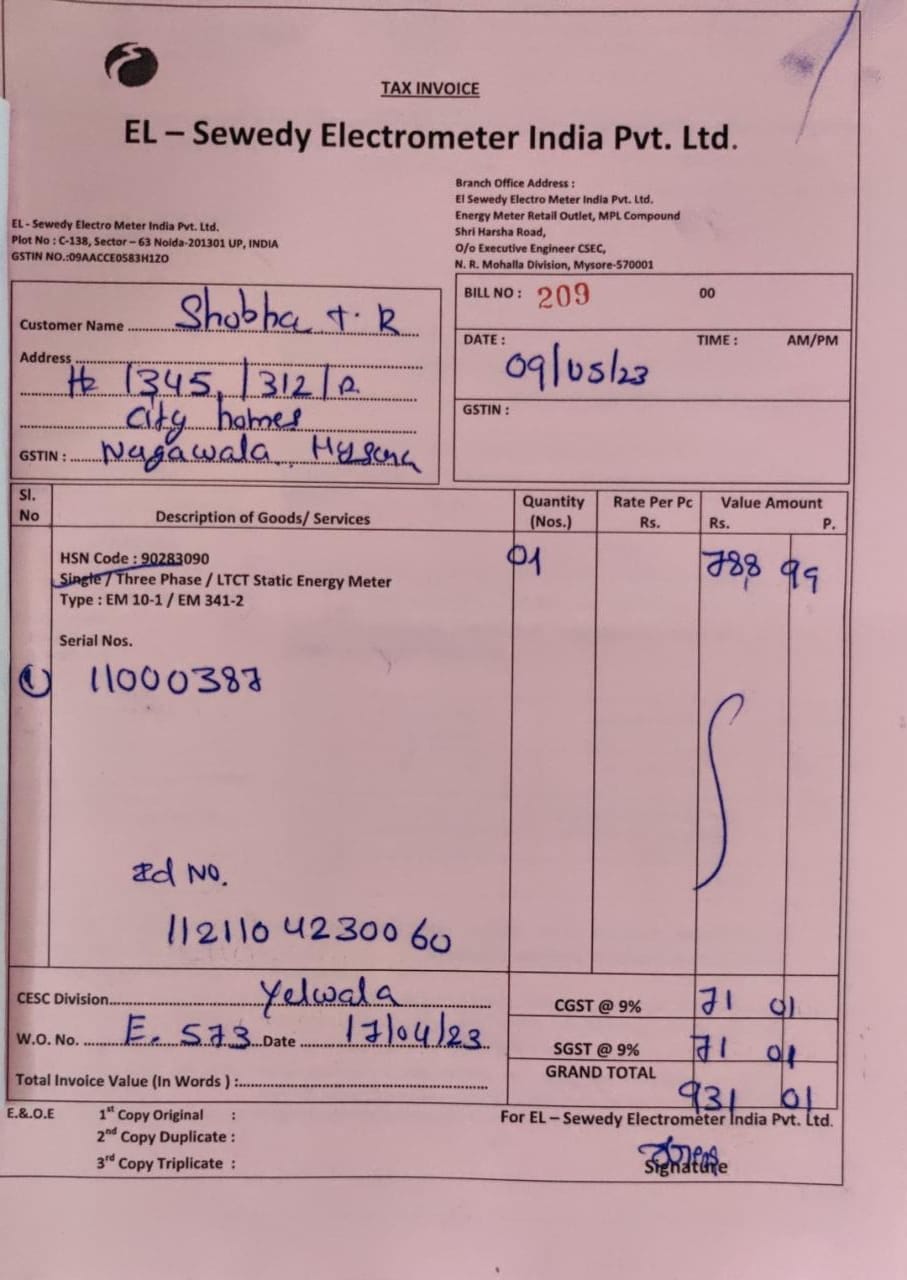 TAX INVOICE
EL – Sewedy Electrometer India Pvt. Ltd.
EL - Sewedy Electro Meter India Pvt. Ltd.
Plot No : C-138, Sector – 63 Noida-201301 UP, INDIA
GSTIN NO.:09AACCE0583H1ZO
Branch Office Address :
El Sewedy Electro Meter India Pvt. Ltd.
Energy Meter Retail Outlet, MPL Compound
Shri Harsha Road,
O/o Executive Engineer CSEC,
N. R. Mohalla Division, Mysore-570001
Customer Name Shobha T. R
Address
1345, 1312/
city homes
GSTIN : Nagawala,
BILL NO : 209 00
DATE : TIME : AM/PM
09/05/23
GSTIN :
Sl. No Description of Goods/ Services Quantity (Nos.) Rate Per Pc Rs. Value Amount Rs. P.
HSN Code : 90283090 01 788 99
Single / Three Phase / LTCT Static Energy Meter
Type : EM 10-1 / EM 341-2
Serial Nos.
1 11000387
Id No.
11211042300 60
CESC Division Yelwala
W.O. No. E. 573 Date 17/04/23
Total Invoice Value (In Words ) :
CGST @ 9% 71 01
SGST @ 9% 71 01
GRAND TOTAL 931 01
E.&.O.E 1st Copy Original :
2nd Copy Duplicate :
3rd Copy Triplicate :
For EL – Sewedy Electrometer India Pvt. Ltd.
Signature